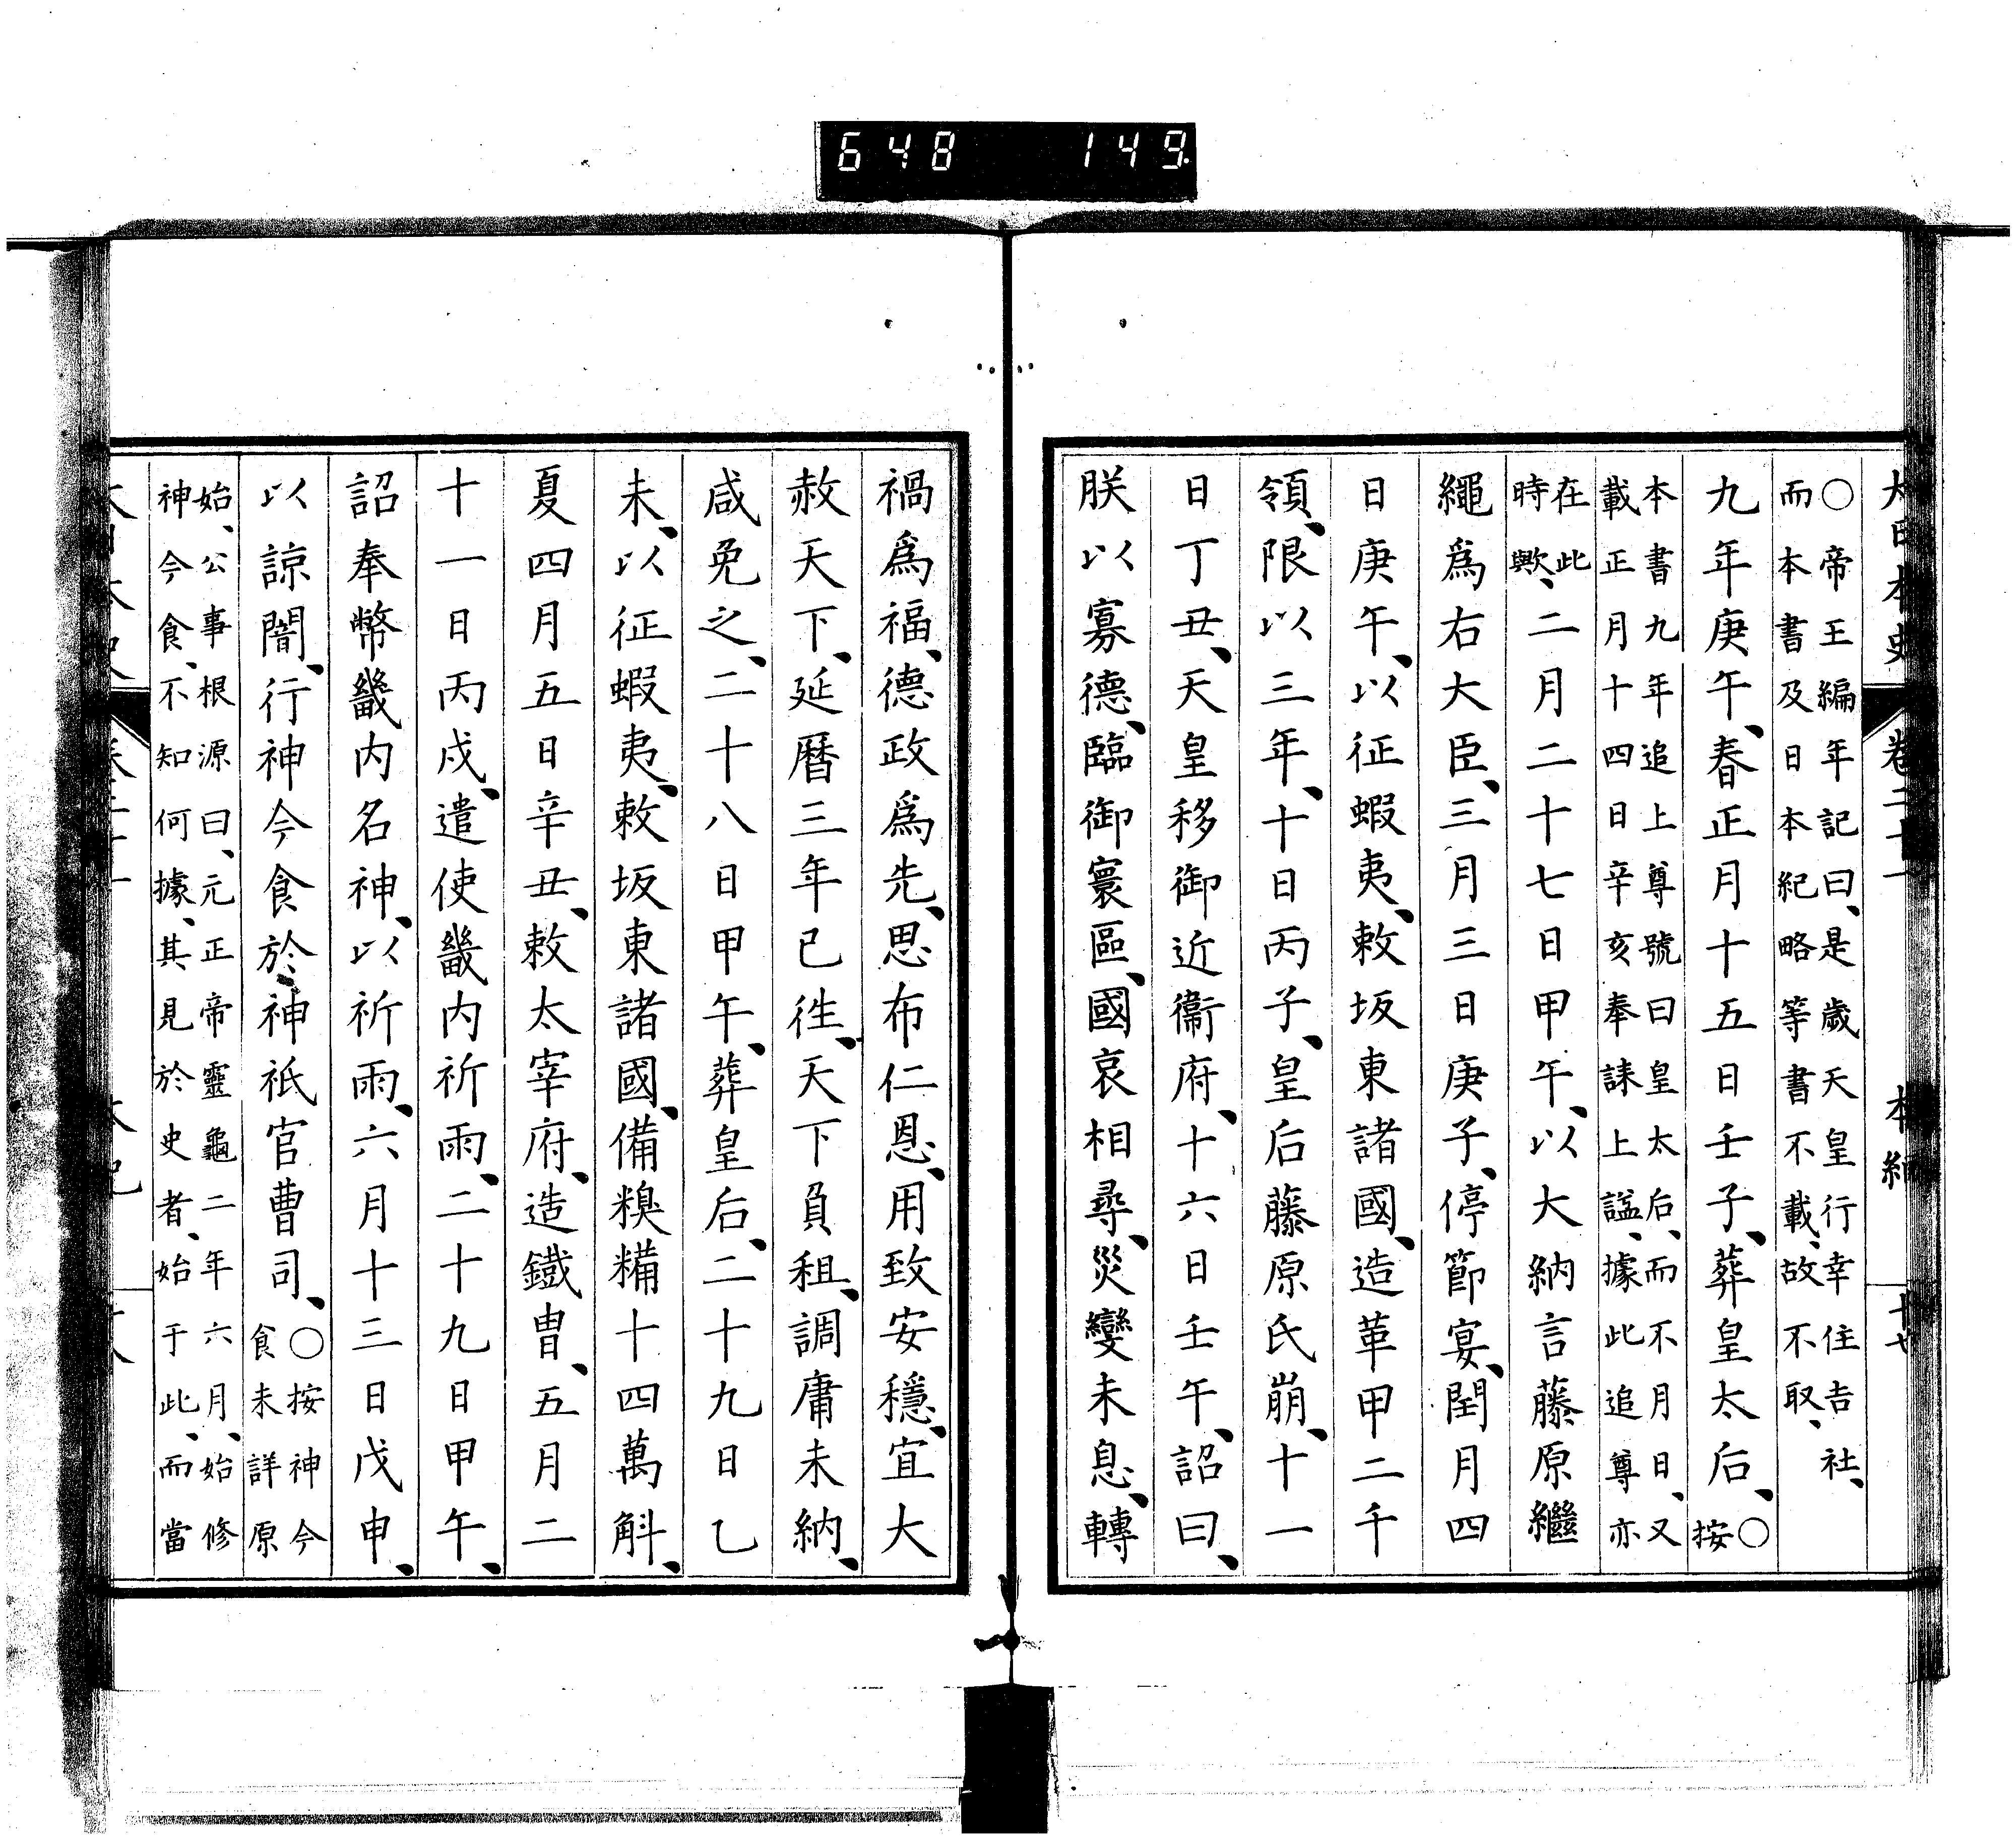 648 149
大日本史 卷二十一 本紀 十七
○帝王編年記曰、是歲天皇行幸住吉社、
而本書及日本紀略等書不載、故不取、
九年庚午、春正月十五日壬子、葬皇太后、○按
本書九年追上尊號曰皇太后、而不月日、又
載正月十四日辛亥奉誄上謚、據此追尊亦
在此
時歟、二月二十七日甲午、以大納言藤原繼
繩爲右大臣、三月三日庚子、停節宴、閏月四
日庚午、以征蝦夷、敕坂東諸國、造革甲二千
領、限以三年、十日丙子、皇后藤原氏崩、十一
日丁丑、天皇移御近衞府、十六日壬午、詔曰、
朕以寡德、臨御寰區、國哀相尋、災變未息、轉
禍爲福、德政爲先、思布仁恩、用致安穩、宜大
赦天下、延曆三年已徃、天下負租、調庸未納、
咸免之、二十八日甲午、葬皇后、二十九日乙
未、以征蝦夷、敕坂東諸國、備糗糒十四萬斛、
夏四月五日辛丑、敕太宰府、造鐵冑、五月二
十一日丙戌、遣使畿内祈雨、二十九日甲午、
詔奉幣畿内名神、以祈雨、六月十三日戊申、
以諒闇、行神今食於神祇官曹司、○按神今
食未詳原
始、公事根源曰、元正帝靈龜二年六月、始修
神今食、不知何據、其見於史者、始于此、而當